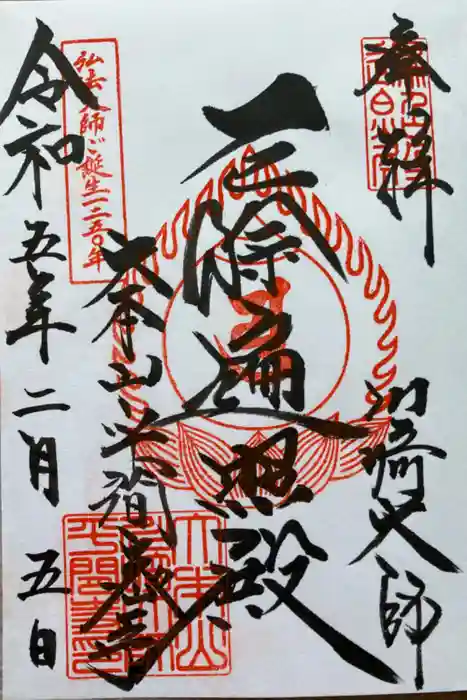 奉拝
川崎大師
厄除遍照殿
大本山平間寺
弘法大師ご誕生一二五〇年
令和五年二月五日